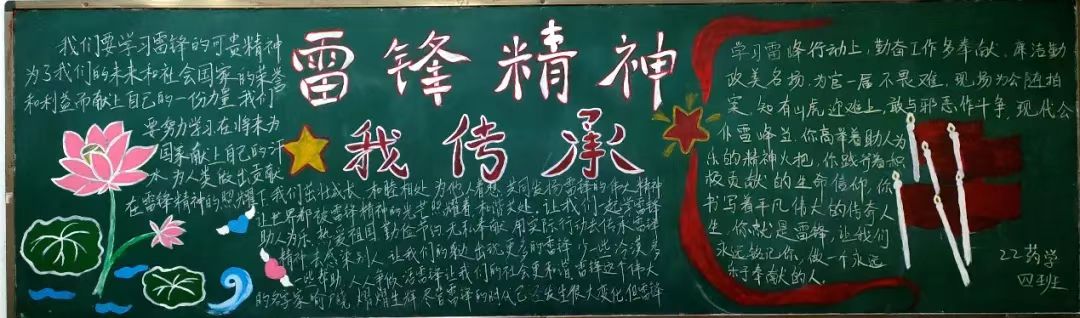 雷锋精神
我传承
我们要学习雷锋的可贵精神
为了我们的未来和社会国家的荣誉
和利益而献上自己的一份力量，我们
要努力学习在将来为
国家献上自己的汗
水，为人类做出贡献
在雷锋精神的照耀下我们茁壮成长，和睦相处，为他人着想，共同发扬雷锋的伟大精神
让世界都被雷锋精神的光芒照耀着和谐共处，让我们一起学雷锋
助人为乐，热爱祖国，勤俭节约，无私奉献，用实际行动去传承雷锋
精神，去感来别人，让我们的献出现更多的雷锋，少一些冷漠，多
一些帮助，人人争做活雷锋，让我们的社会更和谐，雷锋这个伟大
的名字家喻户晓，熠熠生辉，尽管雷锋的时代已经发生很大变化，但雷锋
学习雷峰行动上，勤奋工作多奉献，廉洁勤
政美名扬，为官一届不畏难，现场为公随拍
案，知有山虎迎难上，敢与邪恶作斗争，现代会
仆雷峰兰，你高举着助人为
乐的精神火把，你践行着积
极贡献的生命信仰，你
书写着平凡伟大的传奇人
生，你就是雷锋，让我们
永远铭记你，做一个永远
乐于奉献的人。
22药学
四班